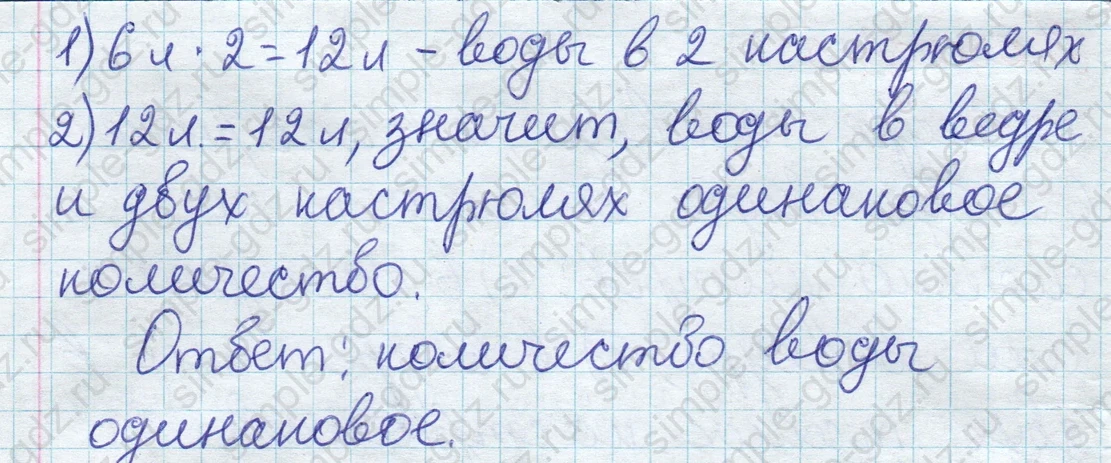 1) 6 л · 2 = 12 л – воды в 2 кастрюлях
2) 12 л. = 12 л, значит, воды в ведре
и двух кастрюлях одинаковое
количество.
Ответ: количество воды
одинаковое.